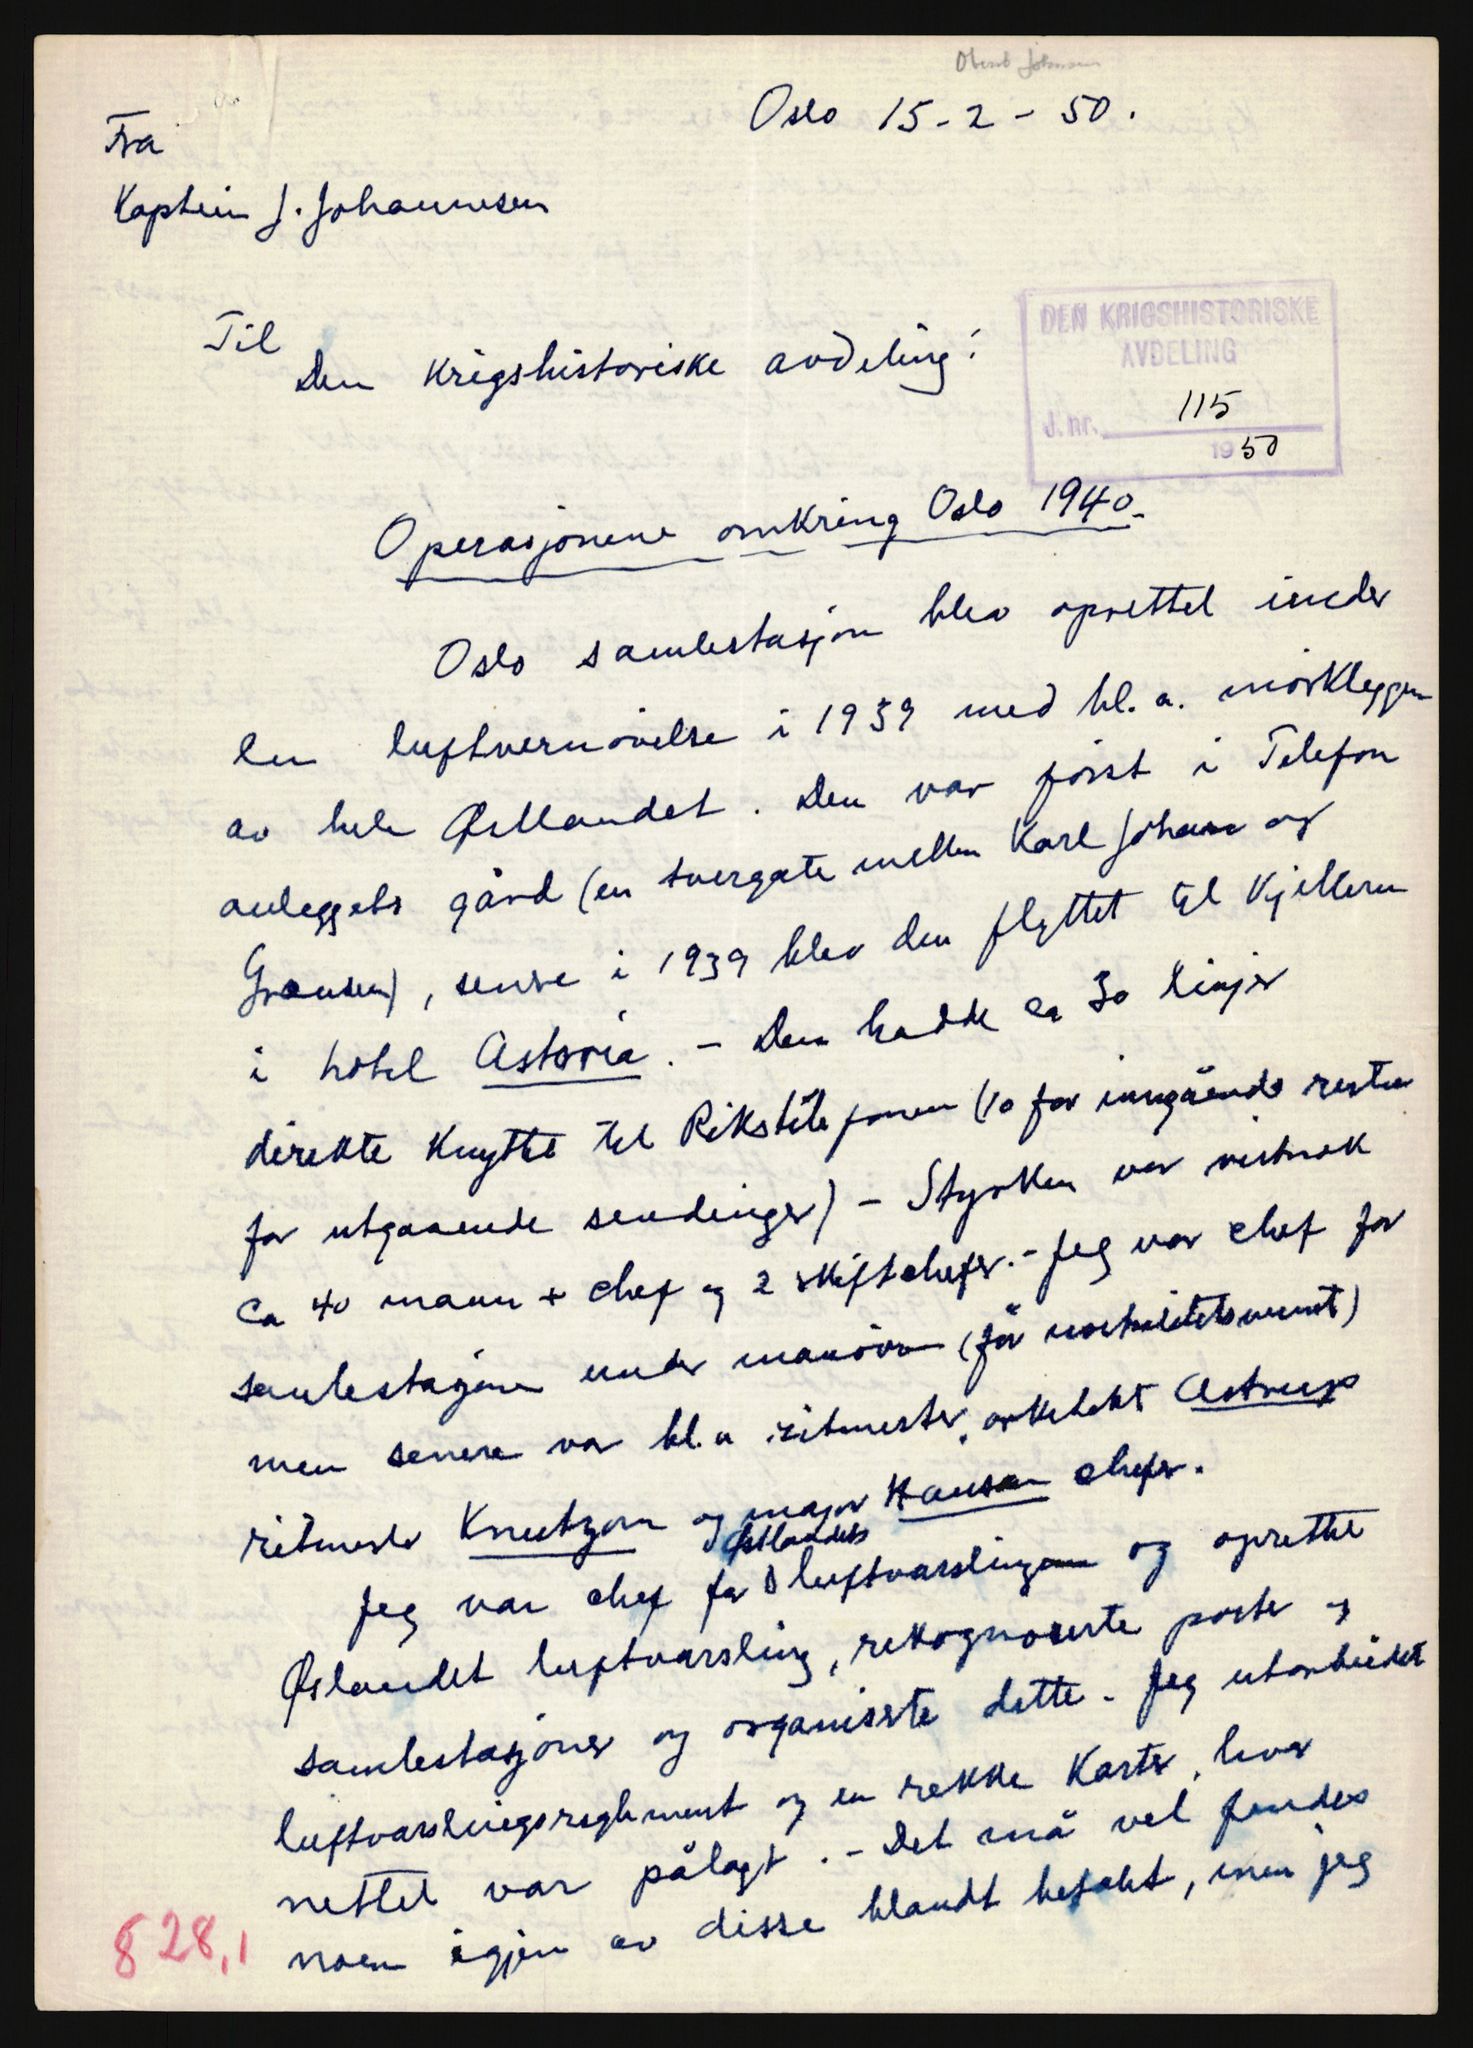 Oslo 15-2-50.
Fra
Kaptein J. Johannesen
Til
Den Krigshistoriske avdeling!
DEN KRIGSHISTORISKE
AVDELING
J. nr. 115
1950
Operasjonene omkring Oslo 1940.
Oslo samlestasjon blev oprettet under
en luftvernøvelse i 1939 med bl. a. mørkleggen
av hele Østlandet. Den var først i Telefon
anleggets gård (en tvergate mellem Karl Johan og
Grensen), senere i 1939 blev den flyttet til Kjelleren
i hotel Astoria. - Den hadde ca 30 linjer
direkte knyttet til Rikstelefonen (10 for inngående resten
for utgaaende sendinger) - Styrken var vistnok
ca 40 mann + chef og 2 skiftchefer. - Jeg var chef for
samlestasjonen under manøvren (før nøitralitetsvernet)
men senere var bl.a ritmester, arkitekt Astrup
ritmester Knutzon og major Hansen chefer.
Østlandets
Jeg var chef for luftvarslingen og oprettet
Øslandet luftvarsling, rekognoserte poster og
samlestasjoner og organiserte dette. Jeg utarbeidet
luftvarslingsreglement og en rekke Karter, hvor
nettet var pålagt. - Det må vel findes
noen igjen av disse blandt befalet, men jeg
828,1